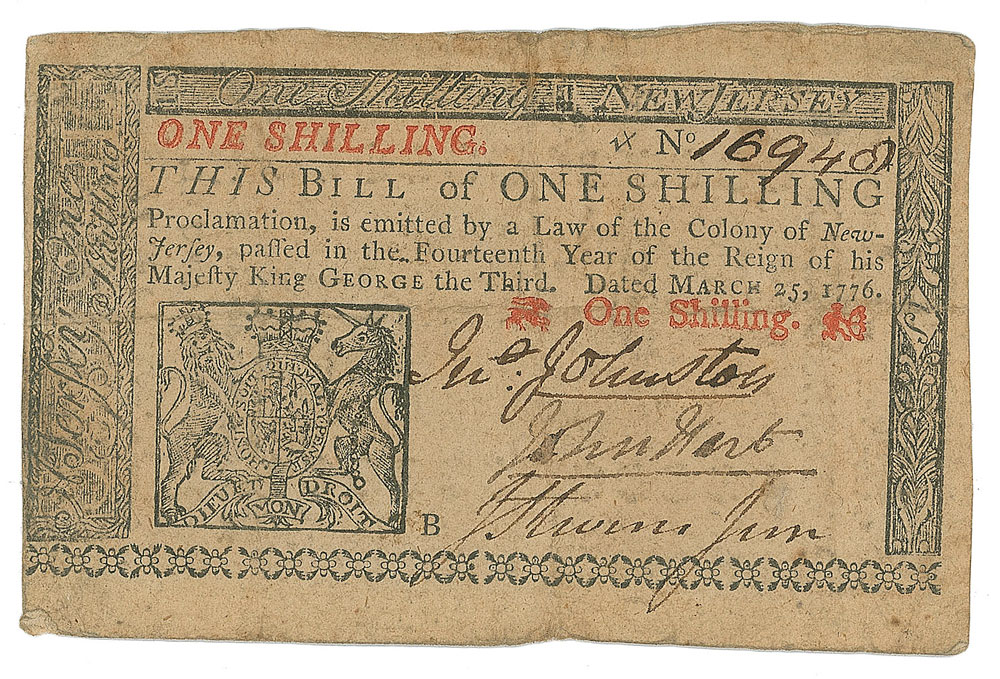 One Shilling NEW JERSEY
ONE SHILLING. No 16940
THIS BILL of ONE SHILLING
Proclamation, is emitted by a Law of the Colony of New-
Jerſey, paſſed in the Fourteenth Year of the Reign of his
Majeſty King GEORGE the Third. Dated MARCH 25, 1776.
One Shilling.
Jno. Johnston
John Hart
J Stevens Jun
B
HONI SOIT QUI MAL Y PENSE
DIEU ET MON DROIT
N. Jersey, One Shilling